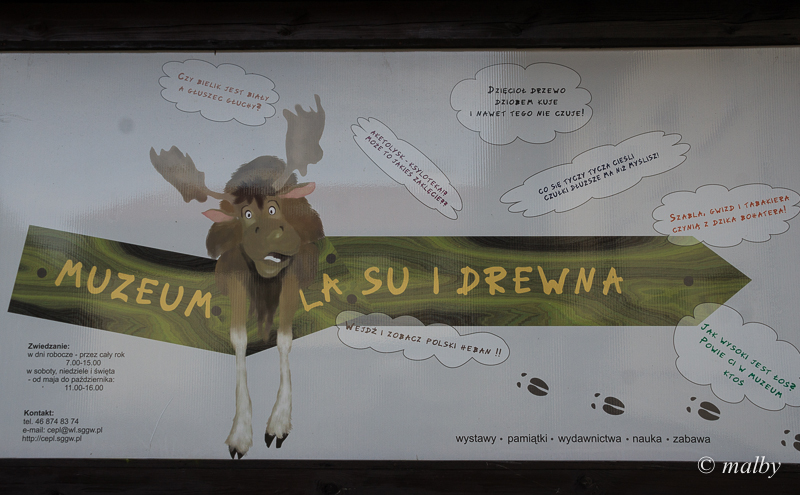 CZY BIELIK JEST BIAŁY
A GŁUSZEC GŁUCHY?
DZIĘCIOŁ DRZEWO
DZIOBEM KUJE
I NAWET TEGO NIE CZUJE!
AKETOLYSK-KSYLOTEKA??
MOŻE TO JAKIEŚ ZAKLĘCIE??
CO SIĘ TYCZY TYCZA CIEŚLI
CZUŁKI DŁUŻSZE MA NIŻ MYŚLISZ!
SZABLA, GWIZD I TABAKIERA
CZYNIĄ Z DZIKA BOHATERA!
MUZEUM LA SU I DREWNA
WEJDŹ I ZOBACZ POLSKI HEBAN !!
JAK WYSOKI JEST ŁOŚ?
POWIE CI W MUZEUM
KTOŚ
Zwiedzanie:
w dni robocze - przez cały rok
7.00-15.00
w soboty, niedziele i święta
- od maja do października:
11.00-16.00
Kontakt:
tel. 46 874 83 74
e-mail: cepl@wl.sggw.pl
http://cepl.sggw.pl
wystawy • pamiątki • wydawnictwa • nauka • zabawa
© malby